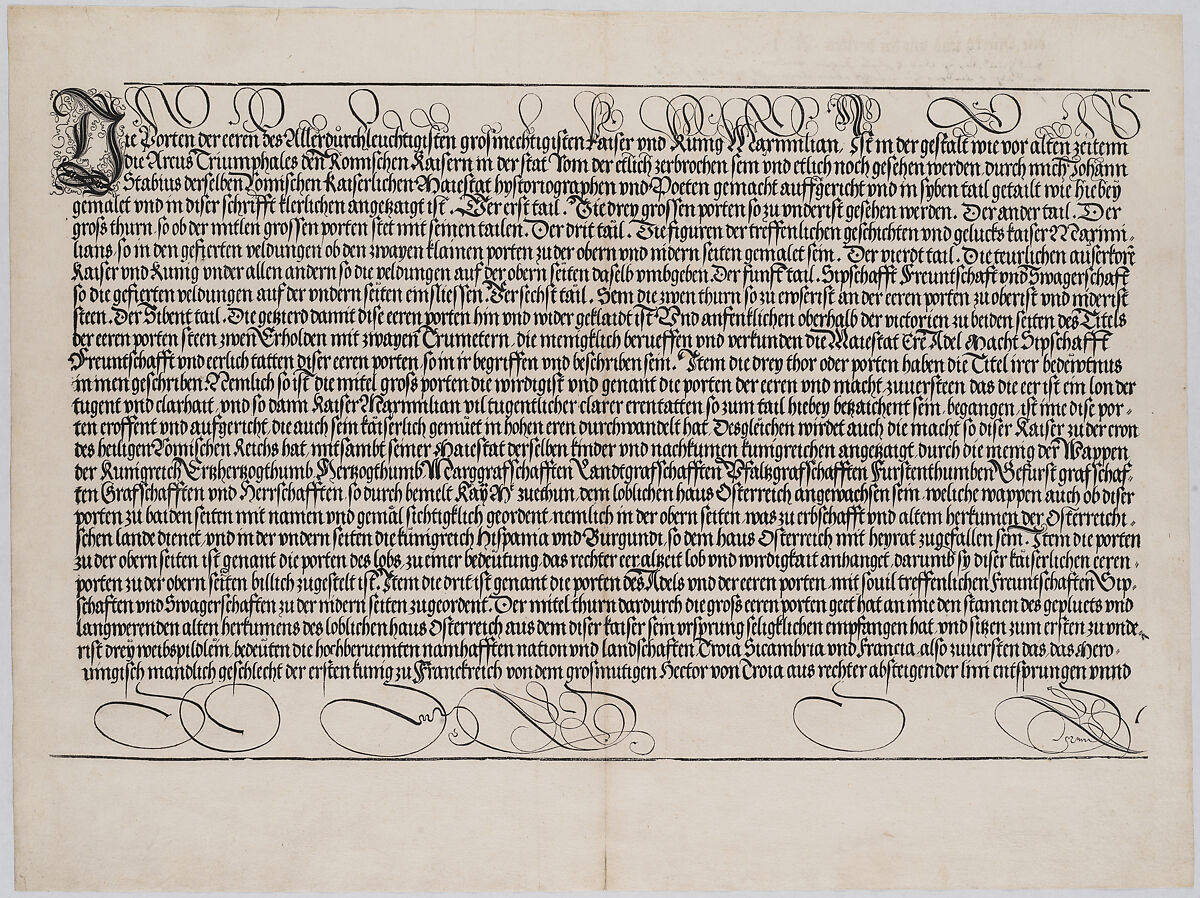 Die Porten der eeren des Allerdurchleuchtigisten grosmechtigisten Kaiser vnd Kunig Maxmilian, Ist in der gestalt wie vor alten zeitenn
die Arcus Triumphales den Romischen Kaisern in der stat Rom der etlich zerbrochen sein vnd etlich noch gesehen werden, durch mich Johann
Stabius derselben Romischen Kaiserlichen Maiestat hystoriographen vnd Poeten gemacht auffgericht vnd in syben tail getailt wie hiebey
gemalet vnd in diser schrifft klerlichen angetzaigt ist. Der erst tail. Die drey grossen porten so zu vnderist gesehen werden. Der ander tail. Der
groß thurn, so ob der mitlen grossen porten stet mit seinen tailen. Der drit tail. Die figuren der treffenlichen geschichten vnd gelucks kaiser Maxmi-
lians so in den gefierten veldungen ob den zwayen klainen porten zu der obern vnd nidern seiten gemalet sein. Der vierdt tail. Die teurlichen auserkorn
Kaiser vnd Kunig vnder allen andern so die veldungen auf der obern seiten daselb vmbgeben. Der funft tail. Sipschafft Freuntschaft vnd Swagerschaft
so die gefierten veldungen auf der vndern seiten einsliessen. Der sechst tail. Sein die zwen thurn so zu ewserist an der eeren porten zu oberist vnd niderist
steen. Der Sibent tail. Die getzierd damit dise eeren porten hin vnd wider geklaidt ist Vnd anfenklichen oberhalb der victorien zu beiden seiten des Titels
der eeren porten steen zwen Erholden mit zwayen Trumetern, die menigklich berueffen vnd verkunden die Maiestat Ere Adel Macht Sipschafft
Freuntschafft vnd eerlich tatten diser eeren porten, so in ir begriffen vnd beschriben sein. Item die drey thor oder porten haben die Titel irer bedewtnus
in inen geschriben. Nemlich so ist die mitel groß porten die wirdigist vnd genant die porten der eeren vnd macht, zuuersteen das die eer ist ein lon der
tugent vnd clarhait, vnd so dann Kaiser Maxmilian vil tugentlicher clarer erentatten so zum tail hiebey betzaichent sein, begangen, ist ime dise por-
ten eroffent vnd aufgericht, die auch sein kaiserlich gemuet in hohen eren durchwandelt hat, Desgleichen wirdet auch die macht so diser Kaiser zu der cron
des heiligen Römischen Reichs hat, mitsambt seiner Maiestat derselben kinder vnd nachkumen kunigreichen angetzaigt, durch die menig der Wappen
der Kunigreich Ertzhertzogthumb Hertzogthumb Marggrafschafften Landtgrafschafften Pfaltzgrafschafften Furstenthumben Gefurst grafschaf-
ten Grafschafften vnd Herrschafften, so durch bemelt Kay Mt zuethun, dem loblichen haus Osterreich angewachsen sein, weliche wappen auch ob diser
porten zu baiden seiten mit namen vnd gemäl sichtigklich geordent, nemlich in der obern seiten, was zu erbschafft vnd altem herkumen der Osterreichi-
schen lande dienet, vnd in der vndern seiten die künigreich Hispania vnd Burgundi, so dem haus Osterreich mit heyrat zugefallen sein. Item die porten
zu der obern seiten ist genant die porten des lobs, zu einer bedeutung, das rechter eer altzeit lob vnd wirdigkait anhanget, darumb sy diser kaiserlichen eeren-
porten zu der obern seiten billich zugestelt ist. Item die drit ist genant die porten des Adels vnd der eeren porten, mit souil treffenlichen Freuntschaften Sip-
schaften vnd Swagerschaften zu der nidern seiten zugeordent. Der mitel thurn dardurch die groß eeren porten geet hat an ime den stamen des gepluets vnd
langwerenden alten herkumens des loblichen haus Osterreich aus dem diser kaiser sein vrsprung seligklichen empfangen hat, vnd sitzen zum ersten zu vnde-
rist drey weibspildlein, bedeuten die hochberuemten namhafften nation vnd landschafften, Troia Sicambria vnd Francia, also zuuersten das, das Mero-
uingisch mandlich geschlecht der ersten kunig zu Franckreich von dem grosmutigen Hector von Troia aus rechter absteigender lini entsprungen vnnd